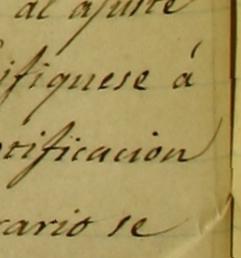 al ajuste
ifiquese á
otificacion
cario se